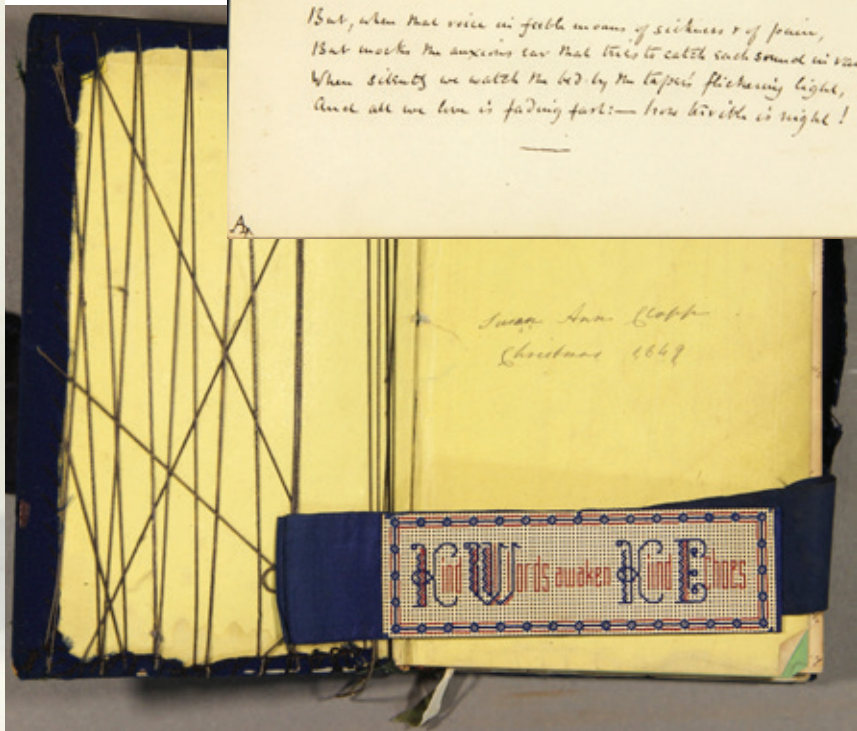 But, when that voice in feeble moans of sickness & of pain,
But mocks the anxious ear that tries to catch each sound in vain
When silently we watch the bed by the taper's flickering light,
And all we love is fading fast:— how terrible is night!
A
Susan Ann Clapp
Christmas 1849
Kind Words awaken Kind Echoes